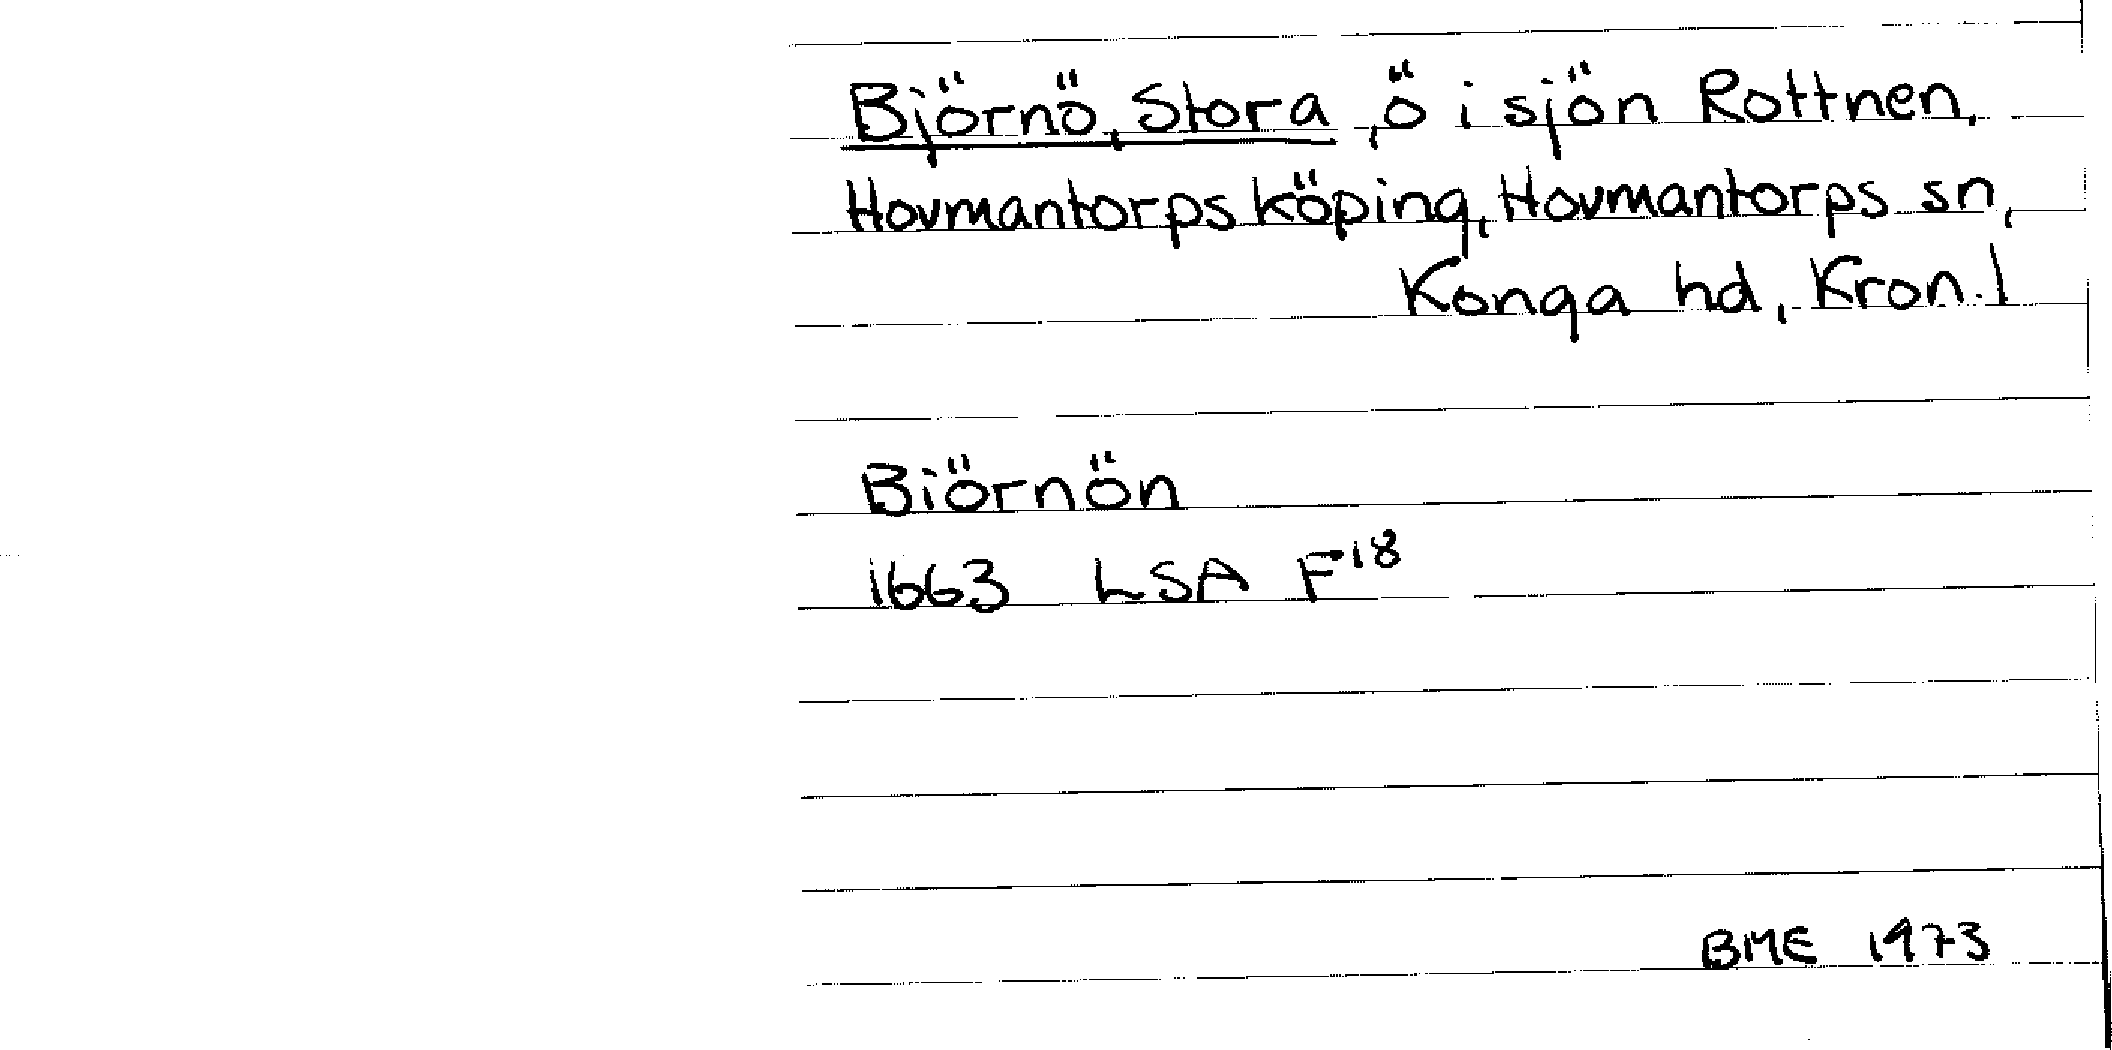 Björnö, Stora, ö i sjön Rottnen,
Hovmantorps köping, Hovmantorps sn,
Konga hd, Kron. l
Biörnön
1663 LSA F18
BME 1973